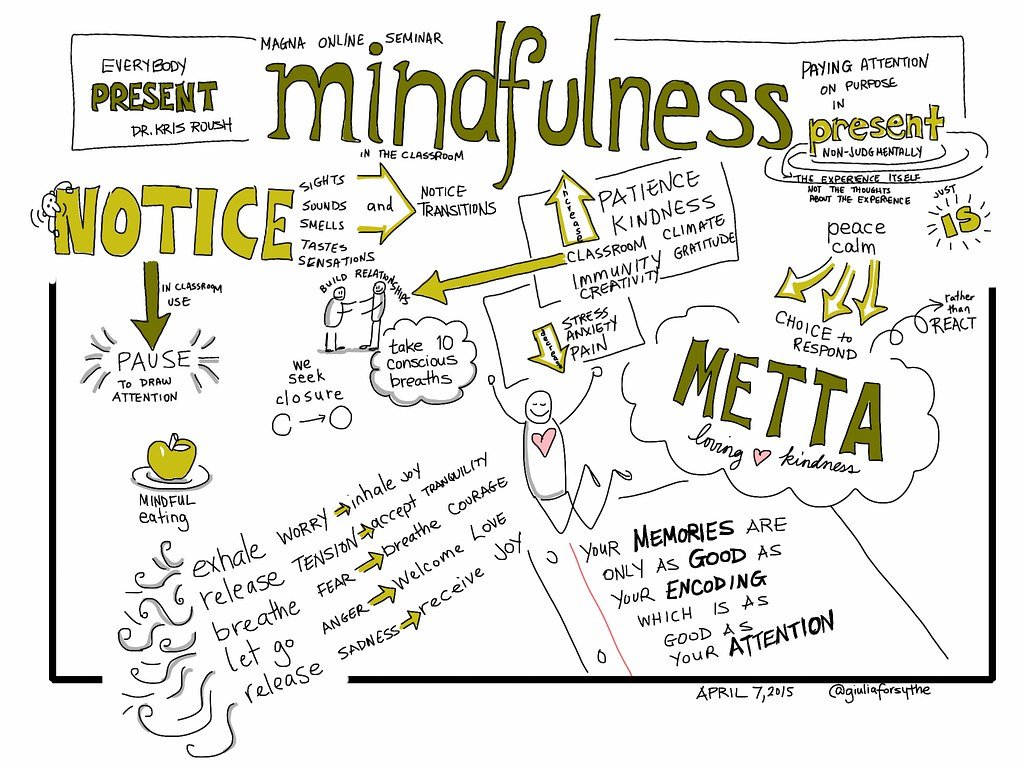 MAGNA ONLINE SEMINAR
EVERYBODY
PRESENT
DR. KRIS ROUSH
mindfulness
IN THE CLASSROOM
PAYING ATTENTION
ON PURPOSE
IN
present
NON-JUDGMENTALLY
THE EXPERIENCE ITSELF
NOT THE THOUGHTS
ABOUT THE EXPERIENCE
JUST
IS
NOTICE
SIGHTS
SOUNDS and
SMELLS
TASTES
SENSATIONS
NOTICE
TRANSITIONS
increase
PATIENCE
KINDNESS
CLASSROOM CLIMATE
IMMUNITY GRATITUDE
CREATIVITY
BUILD RELATIONSHIPS
STRESS
ANXIETY
PAIN
peace
calm
CHOICE to
RESPOND
rather
than
REACT
IN CLASSROOM
USE
PAUSE
TO DRAW
ATTENTION
we
seek
closure
take 10
conscious
breaths
METTA
loving kindness
MINDFUL
eating
exhale WORRY inhale JOY
release TENSION accept TRANQUILITY
breathe FEAR breathe COURAGE
let go ANGER Welcome LOVE
release SADNESS receive JOY
YOUR MEMORIES ARE
ONLY AS GOOD AS
YOUR ENCODING
WHICH IS AS
GOOD AS
YOUR ATTENTION
APRIL 7, 2015 @giuliaforsythe